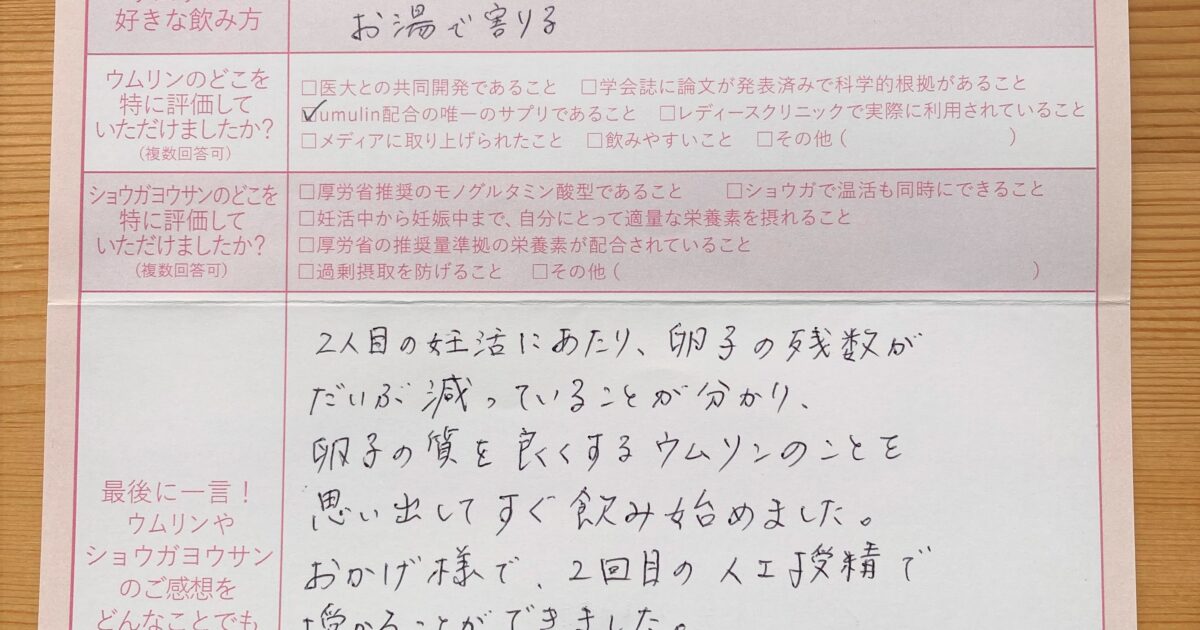 好きな飲み方
お湯で割りる
ウムリンのどこを
特に評価して
いただけましたか?
(複数回答可)
□医大との共同開発であること □学会誌に論文が発表済みで科学的根拠があること
☑umulin配合の唯一のサプリであること □レディースクリニックで実際に利用されていること
□メディアに取り上げられたこと □飲みやすいこと □その他 ( )
ショウガヨウサンのどこを
特に評価して
いただけましたか?
(複数回答可)
□厚労省推奨のモノグルタミン酸型であること □ショウガで温活も同時にできること
□妊活中から妊娠中まで、自分にとって適量な栄養素を摂れること
□厚労省の推奨量準拠の栄養素が配合されていること
□過剰摂取を防げること □その他 ( )
最後に一言!
ウムリンや
ショウガヨウサン
のご感想を
どんなことでも
2人目の妊活にあたり、卵子の残数が
だいぶ減っていることが分かり、
卵子の質を良くするウムソンのことを
思い出してすぐ飲み始めました。
おかげ様で、2回目の人工授精で
授かることができました。